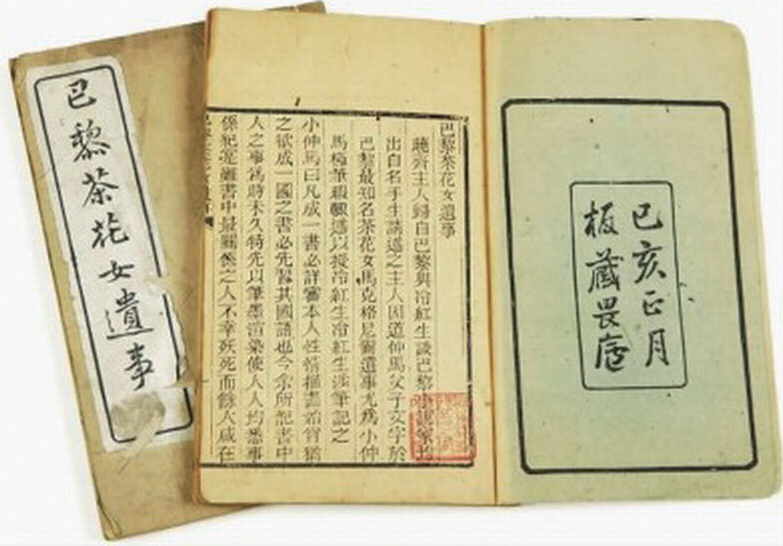 巴黎茶花女遺事
己亥正月
板藏畏廬
巴黎茶花女遺事
曉齋主人歸自巴黎與冷紅生談巴黎小說家均
出自名手生請述之主人因道仲馬父子文字於
巴黎最知名茶花女馬克格尼爾遺事尤爲小仲
馬極筆暇輒述以授冷紅生冷紅生涉筆記之
小仲馬曰凡成一書必詳審本人性情描畫始肖猶
之欲成一國之書必先習其國語也今余所記書中
人之事爲時未久特先以筆墨渲染使人人均悉事
係紀實雖書中最關係之人不幸妖死而餘人咸在